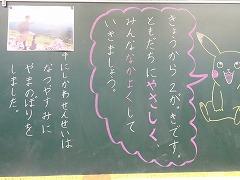 きょうから2がっきです。
ともだちにやさしく、
みんななかよくして
いきましょう。
にしかわせんせいは
なつやすみに
やまのぼりを
しました。